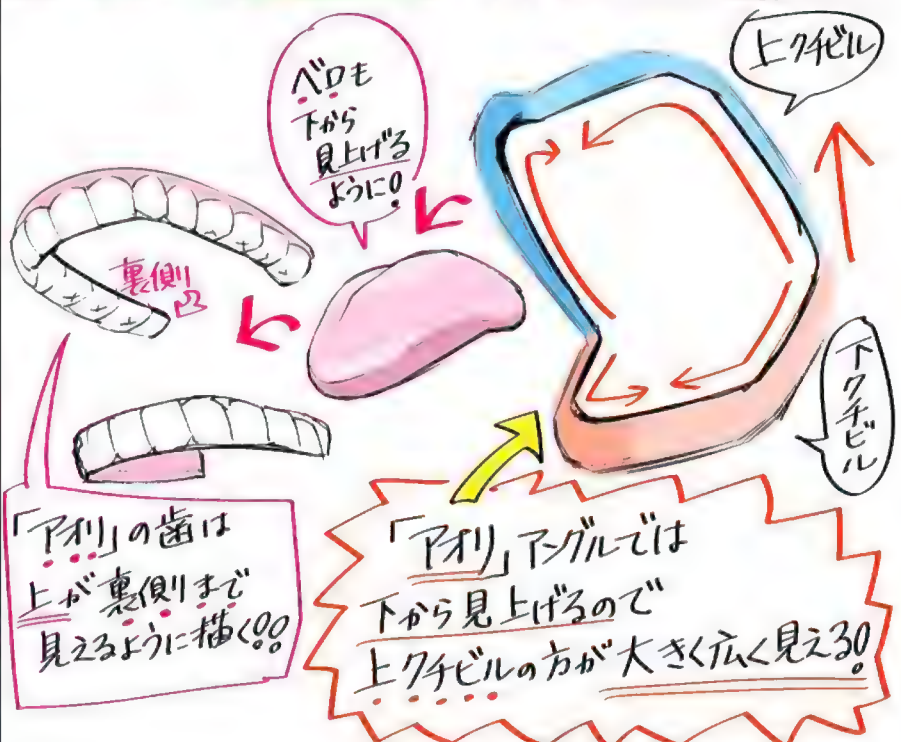 上クチビル
ベロも
下から
見上げる
ように!
裏側
下クチビル
「アオリ」の歯は
上が裏側まで
見えるように描く!!
「アオリ」アングルでは
下から見上げるので
上クチビルの方が大きく広く見える!